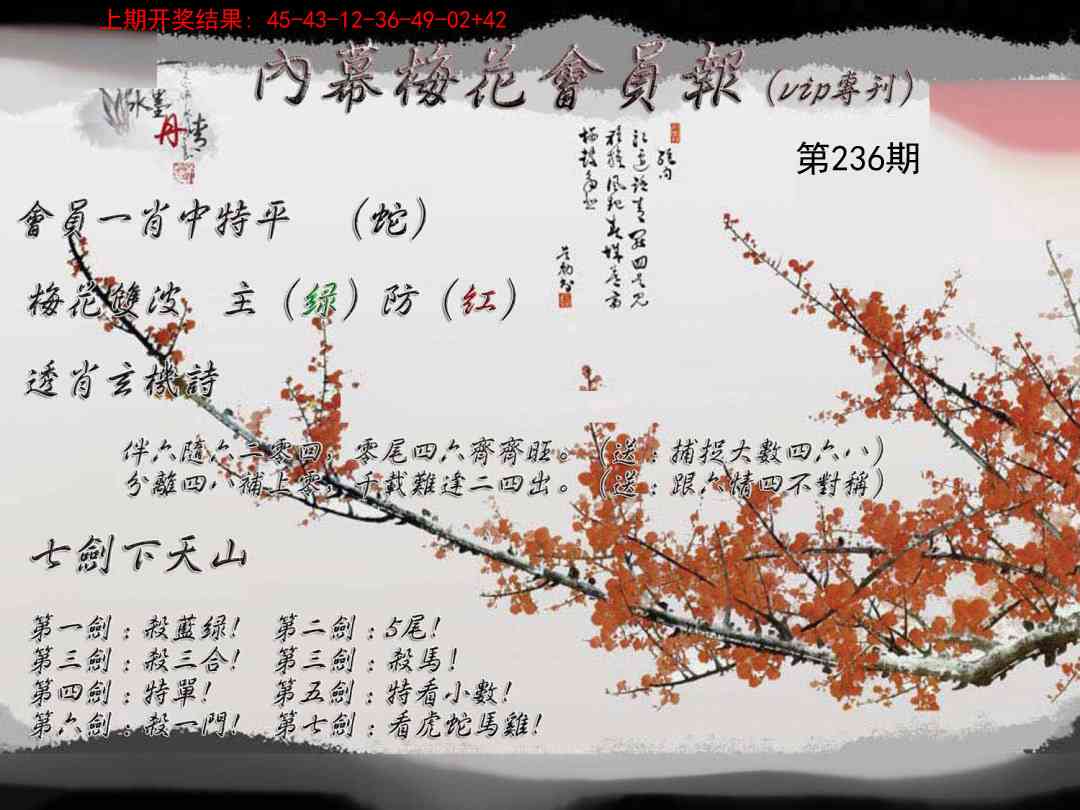 上期开奖结果: 45-43-12-36-49-02+42
內幕梅花會員報(vip專刊)
水墨
丹青
第236期
會員一肖中特平 （蛇）
梅花雙波 主（绿）防（红）
透肖玄機詩
伴六隨六二零回，零尾四六齊齊旺。（送：捕捉大數四六八）
分離四八補上零，千載難逢二四出。（送：跟六情四不對稱）
七劍下天山
第一劍：殺藍绿！ 第二劍：5尾！
第三劍：殺三合！ 第三劍：殺馬！
第四劍：特單！ 第五劍：特看小數！
第六劍：殺一門！ 第七劍：看虎蛇馬雞！